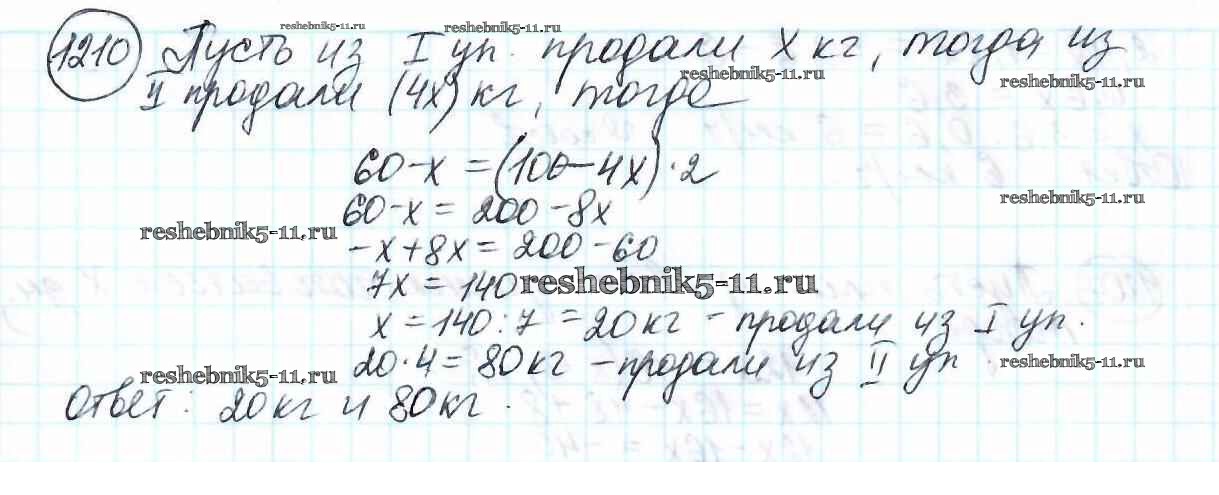 reshebnik5-11.ru reshebnik5-11.ru
1210 Пусть из I уп. продали х кг, тогда из
reshebnik5-11.ru reshebnik5-11.ru
II продали (4х) кг, тогда
60-х = (100-4х)·2
60-х = 200-8х reshebnik5-11.ru
reshebnik5-11.ru
-х+8х = 200-60
7х = 140 reshebnik5-11.ru
х = 140:7 = 20кг - продали из I уп.
20·4 = 80кг - продали из II уп reshebnik5-11.ru
reshebnik5-11.ru
Ответ: 20кг и 80кг.